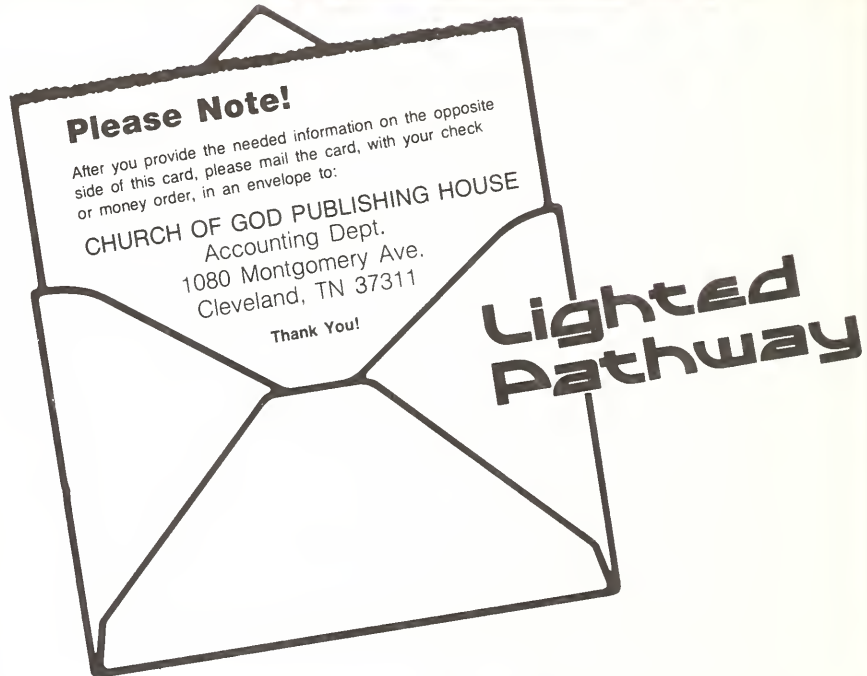 Please Note!
After you provide the needed information on the opposite
side of this card, please mail the card, with your check
or money order, in an envelope to:
CHURCH OF GOD PUBLISHING HOUSE
Accounting Dept.
1080 Montgomery Ave.
Cleveland, TN 37311
Thank You!
Lighted
Pathway